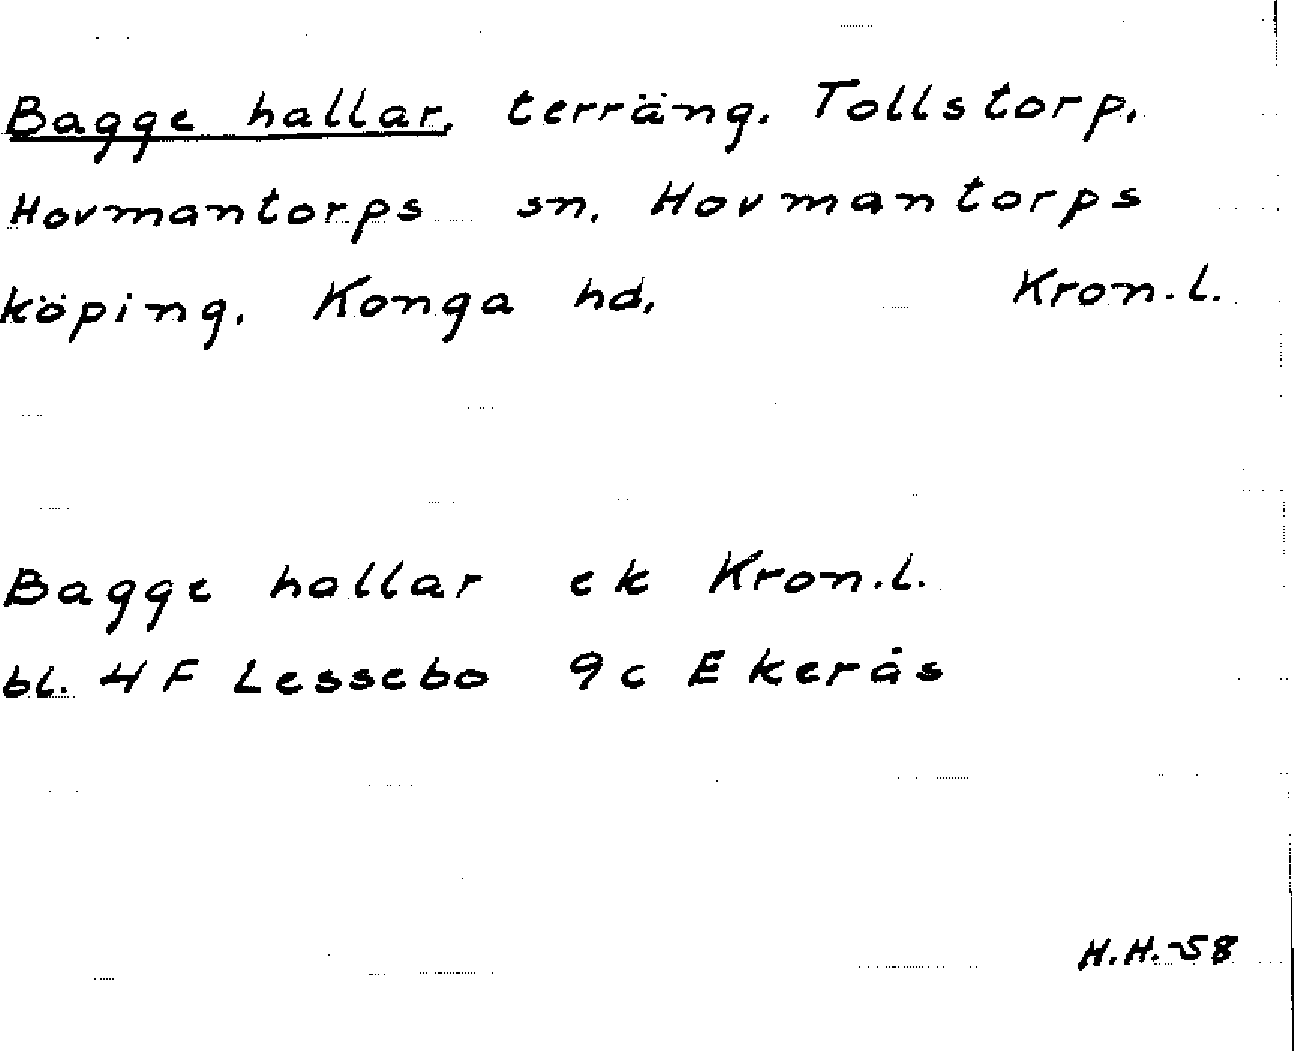 Bagge hallar, terräng. Tollstorp,
Hovmantorps sn. Hovmantorps
köping. Konga hd, Kron.l.
Bagge hallar ek Kron.l.
bl. 4F Lessebo 9c Ekerås
H.H.-58